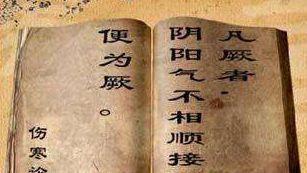 凡厥者，
阴阳气不相顺接
便为厥。
伤寒论